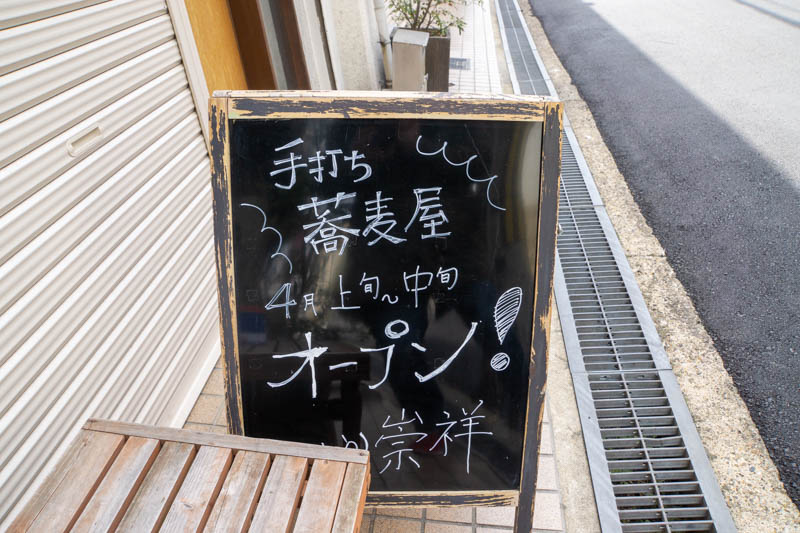 手打ち
蕎麦屋
4月上旬〜中旬
オープン!
崇祥